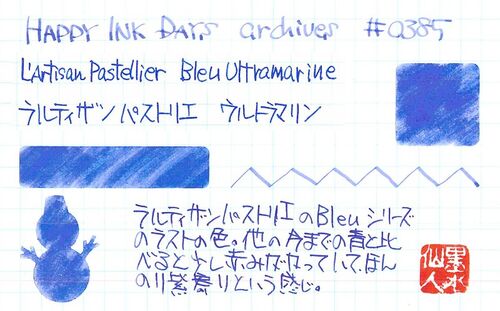 HAPPY INK DAYS archives #0385
L'Artisan Pastellier Bleu Ultramarine
ラルティザン パストリエ ウルトラマリン
ラルティザンパストリエのBleuシリーズ
のラストの色。他の今までの青と比
べると少し赤みがかっていてほん
のり紫寄りという感じ。
墨水
仙人